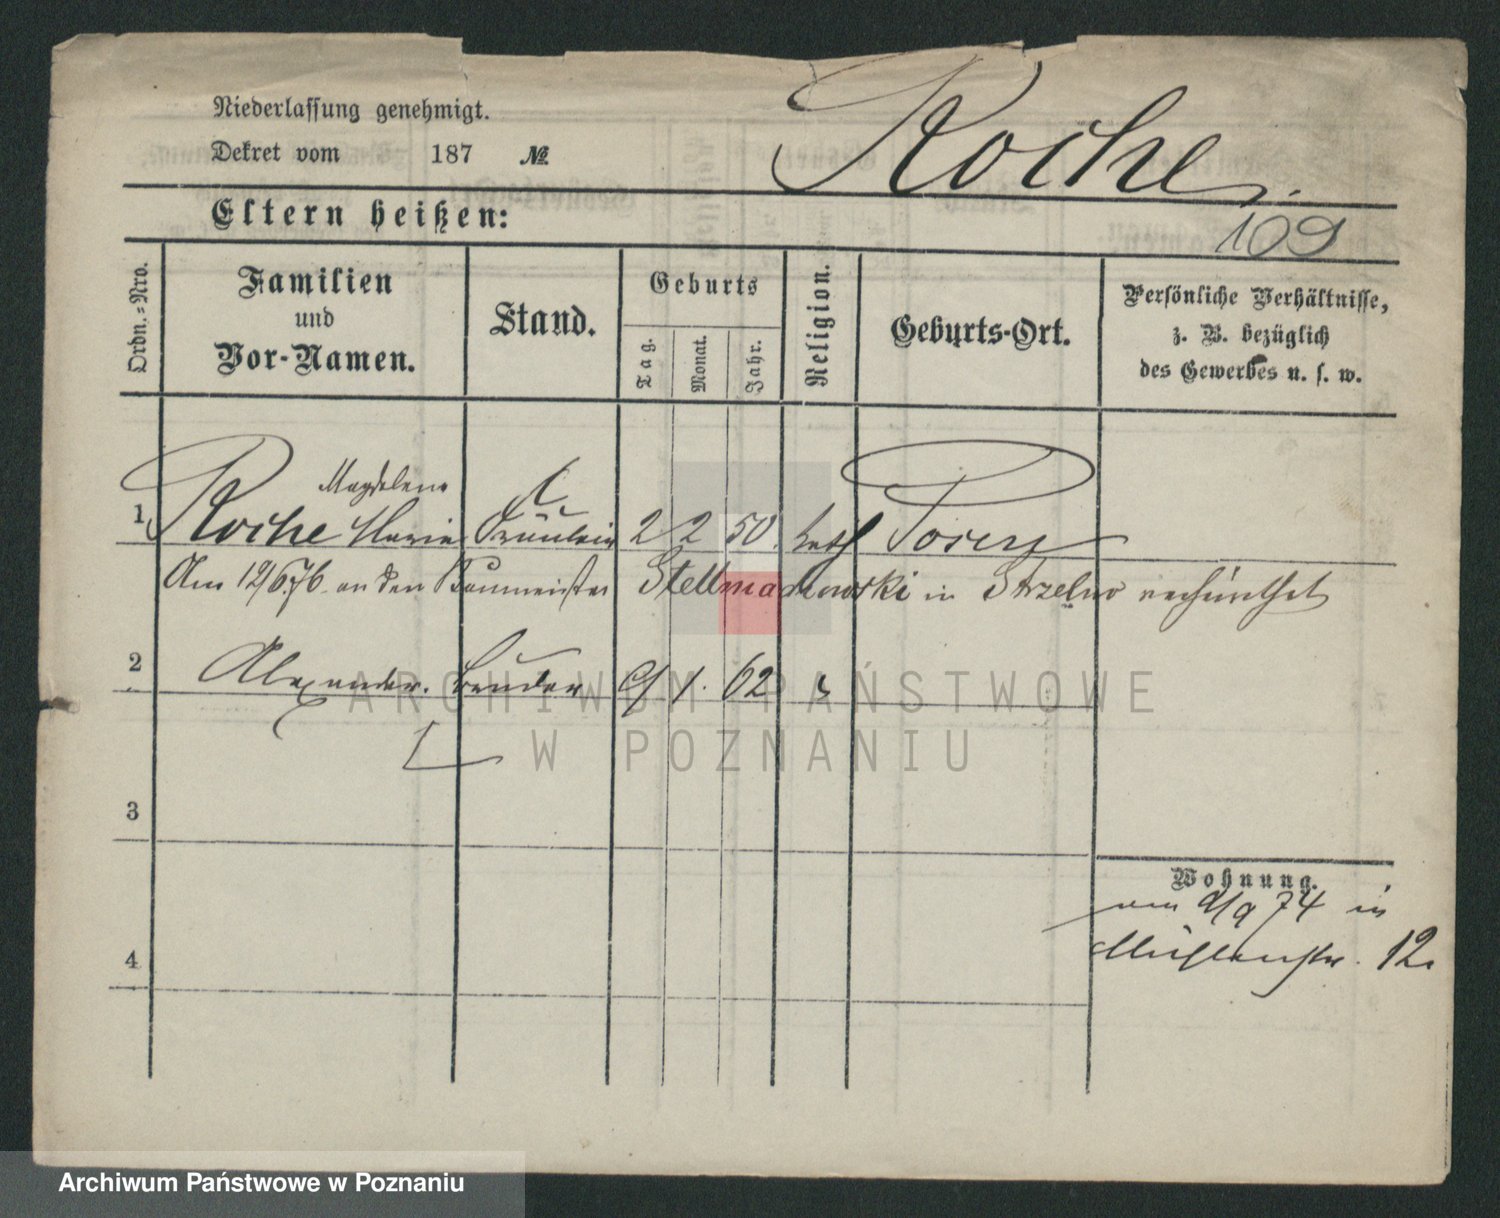 Niederlassung genehmigt.
Dekret vom 187 №
Roche.
109
Eltern heißen:
Ordn.=Nro.
Familien
und
Vor-Namen.
Stand.
Geburts
Tag.
Monat.
Jahr.
Religion.
Geburts-Ort.
Persönliche Verhältnisse,
z. B. bezüglich
des Gewerbes u. s. w.
Magdalena
1 Roche Maria Fräulein 2 2 50 kath Posen
Am 12/6.76 an den Baumeister Stellmachowski in Strzelno verheirathet
2 Alexander. Bruder 9/ 1. 62
3
4
Wohnung.
vom 9/9 74 in
Mühlenstr. 12.
ARCHIWUM PAŃSTWOWE
W POZNANIU
Archiwum Państwowe w Poznaniu